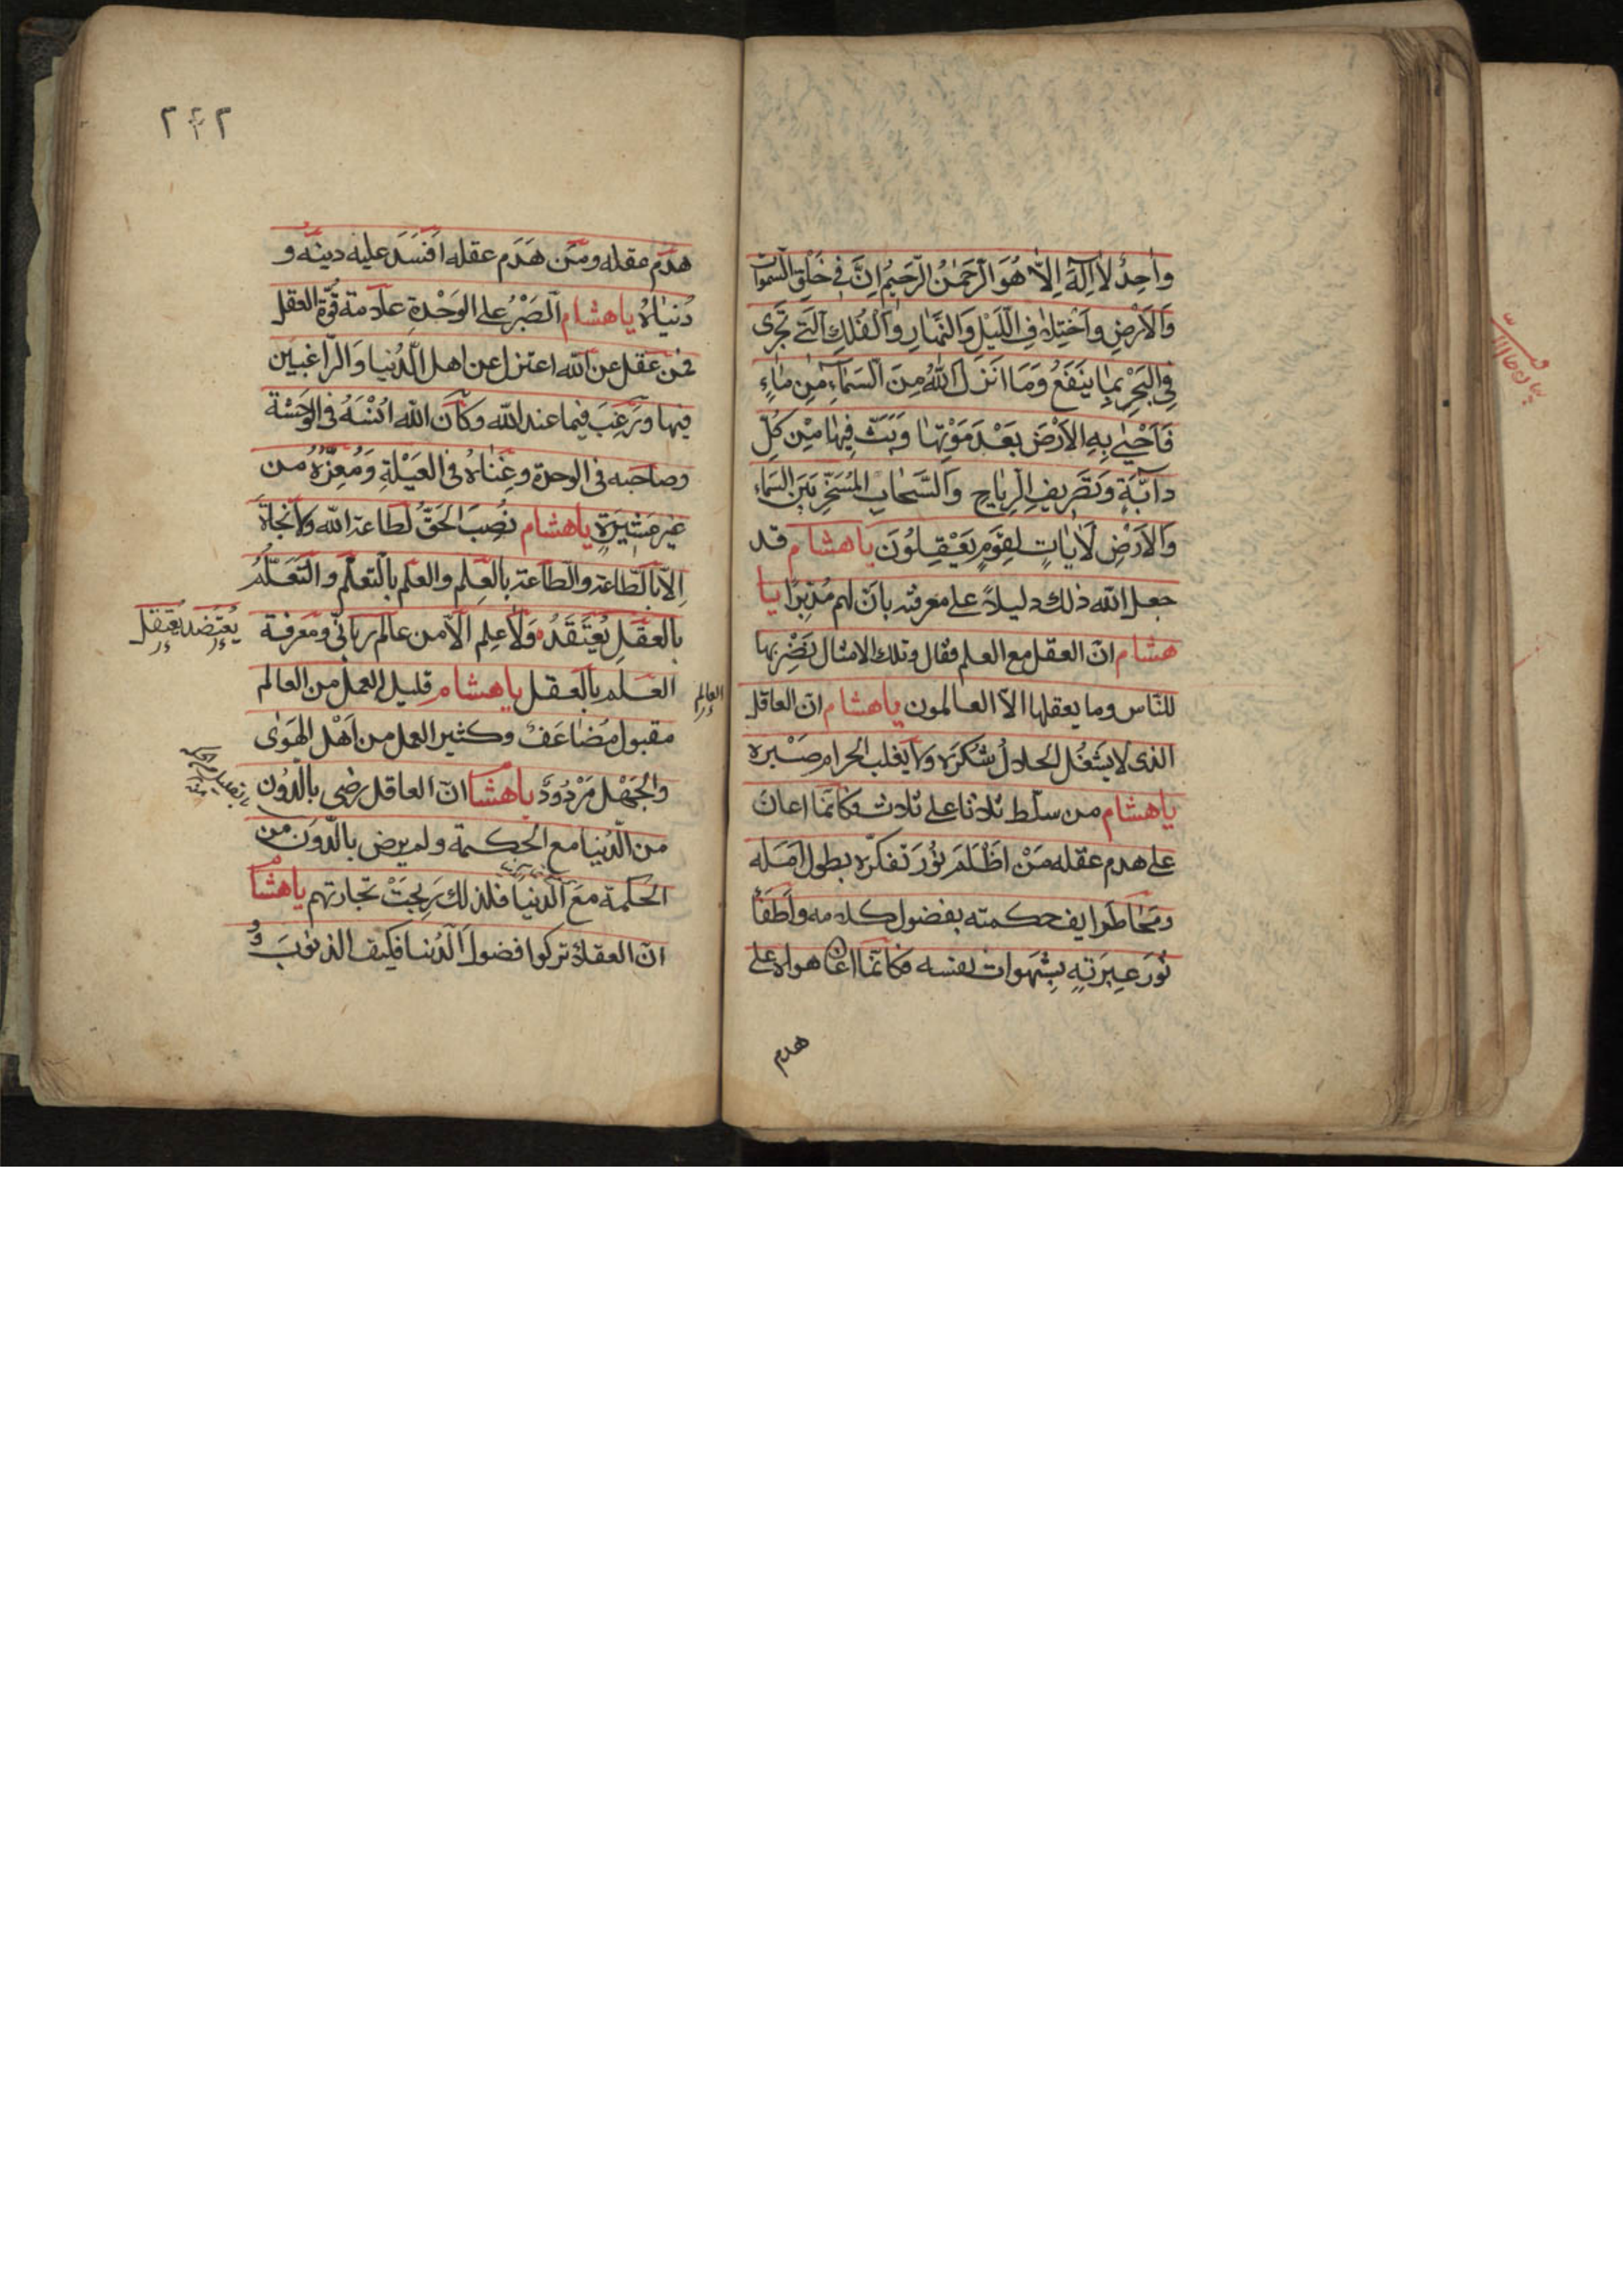 وٰاحِدٌ لاٰ اِلٰهَ اِلاّٰ هُوَ الرَّحْمٰنُ الرَّحيمُ اِنَّ فى خَلْقِ السَّمٰوات
وَالاَرْضِ وَاخْتِلاٰفِ اللَّيْلِ وَالنَّهٰارِ وَالْفُلْكِ الَّتى تَجْرى
فِى الْبَحْرِ بِمٰا يَنْفَعُ وَمَا اَنْزَلَ اللّٰهُ مِنَ السَّمٰآءِ مِنْ مٰاءٍ
فَاَحْيٰى بِهِ الاَرْضَ بَعْدَ مَوْتِهٰا وَبَثَّ فِيهٰا مِنْ كُلِّ
دآبَّةٍ وَتَصْريفِ الرِيٰاحِ وَالسَّحٰابِ المُسَخَّرِ بَيْنَ السَّمٰاءِ
وَالاَرْضِ لَاٰيٰاتٍ لِقَوْمٍ يَعْقِلُونَ يا هشام قد
جعل الله ذلك دليلاً على معرفته بانّ لهم مُدَبِّرًا يا
هشام انّ العقل مع العلم فقال وتلك الامثال نَضْرِبها
للنّاس وما يعقلها الاّ العالمون يا هشام انّ العاقل
الذى لا يَشْغُل الحلالُ شُكْرَه ولا يغلب الحرام صَبْره
يا هشام من سلّط ثلاثا على ثلاث فكانّما اعان
على هدم عقله مَنْ اَظْلَمَ نُورَ تفكّره بطول اَمَله
ومَحٰا طرايف حكمته بفضول كلامه واَطفَأ
نُورَ عِبرَتِهِ بِشهَوات نفسه فكانّما اعان هواه على
هدم
٢٤٢
هدم عقله ومَن هَدَم عقله اَفسَدَ عليه دينَه و
دُنيٰاهُ يا هشام الصَبْرُ على الوَحْدةِ علامة قُوّة العقل
فمن عقل عن الله اعتزل عن اهل الدُنيا والراغبين
فيها ورَغِبَ فيما عند الله وكان الله اُنْسَهُ فى الوَحشة
وصاحبه فى الوحدة وغِناهُ فى العَيْلةِ وَمُعِزَّهُ من
غير عشيرةٍ يا هشام نُصِبَ الحَقُّ لطاعة الله ولا نجاةَ
اِلاّ بالطّاعة والطّاعة بالعِلم والعلم بالتعلّم والتَعَلُّمُ
بالعقلِ يُعْتَقَدُ وَلاٰ علِم الاّ من عالم ربانىّ ومعرفة
يُعتَضد يُعتقل
العلم بالعقل يا هشام قليل العمل من العالم
العالم
مقبول مُضٰاعَفٌ وكثير العمل من اَهْل الهَوٰى
والجَهْل مَرْدُودٌ يا هشا انّ العاقل رضِى بالدُون
من الدُنيا مع الحكمة ولم يرض بالدُون من
الحكمة مَعَ الدنيا فلذلك رَبِحَتْ تجارتهم يا هشا
انّ العقلاءَ تركوا فضول الدُنيا فكيف الذنوبَ وَ